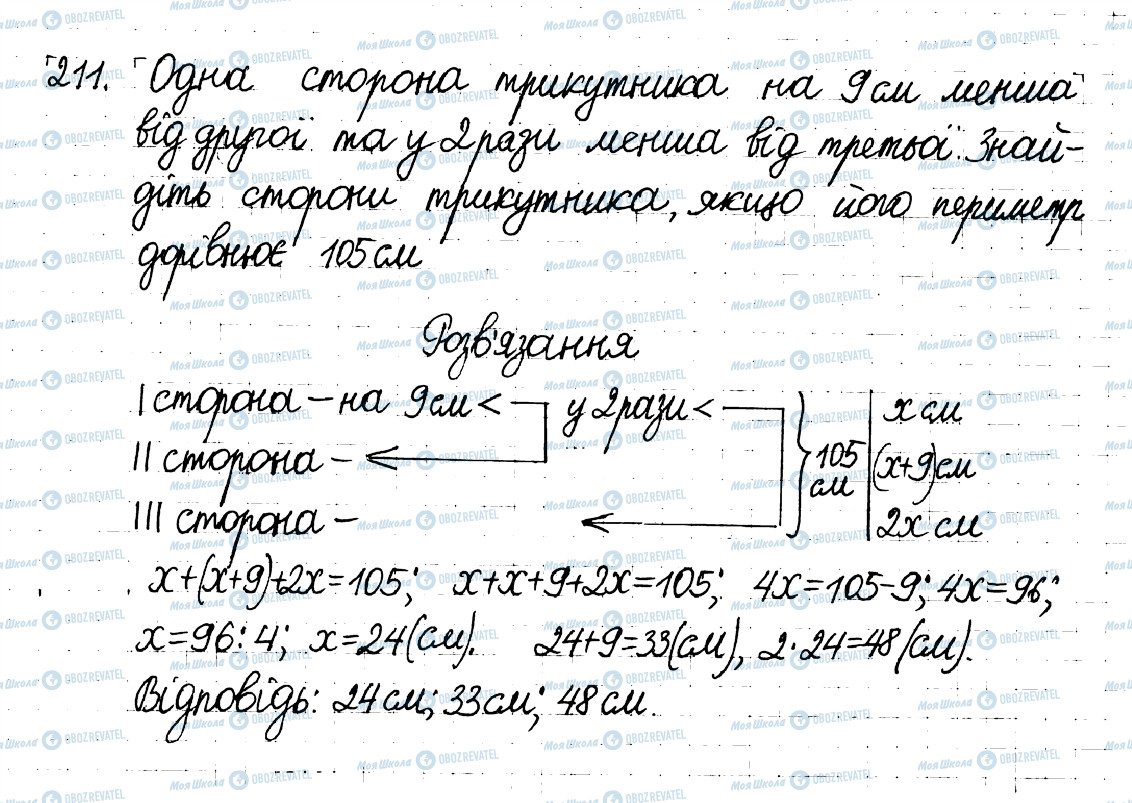 211. Одна сторона трикутника на 9 см менша
від другої та у 2 рази менша від третьої. Знай-
діть сторони трикутника, якщо його периметр
дорівнює 105 см
Розв'язання
I сторона – на 9 см < у 2 рази < x см
II сторона – 105 см (x+9) см
III сторона – 2x см
x+(x+9)+2x=105; x+x+9+2x=105; 4x=105-9; 4x=96;
x=96:4; x=24(см). 24+9=33(см), 2·24=48(см).
Відповідь: 24 см; 33 см; 48 см.
Моя Школа OBOZREVATEL